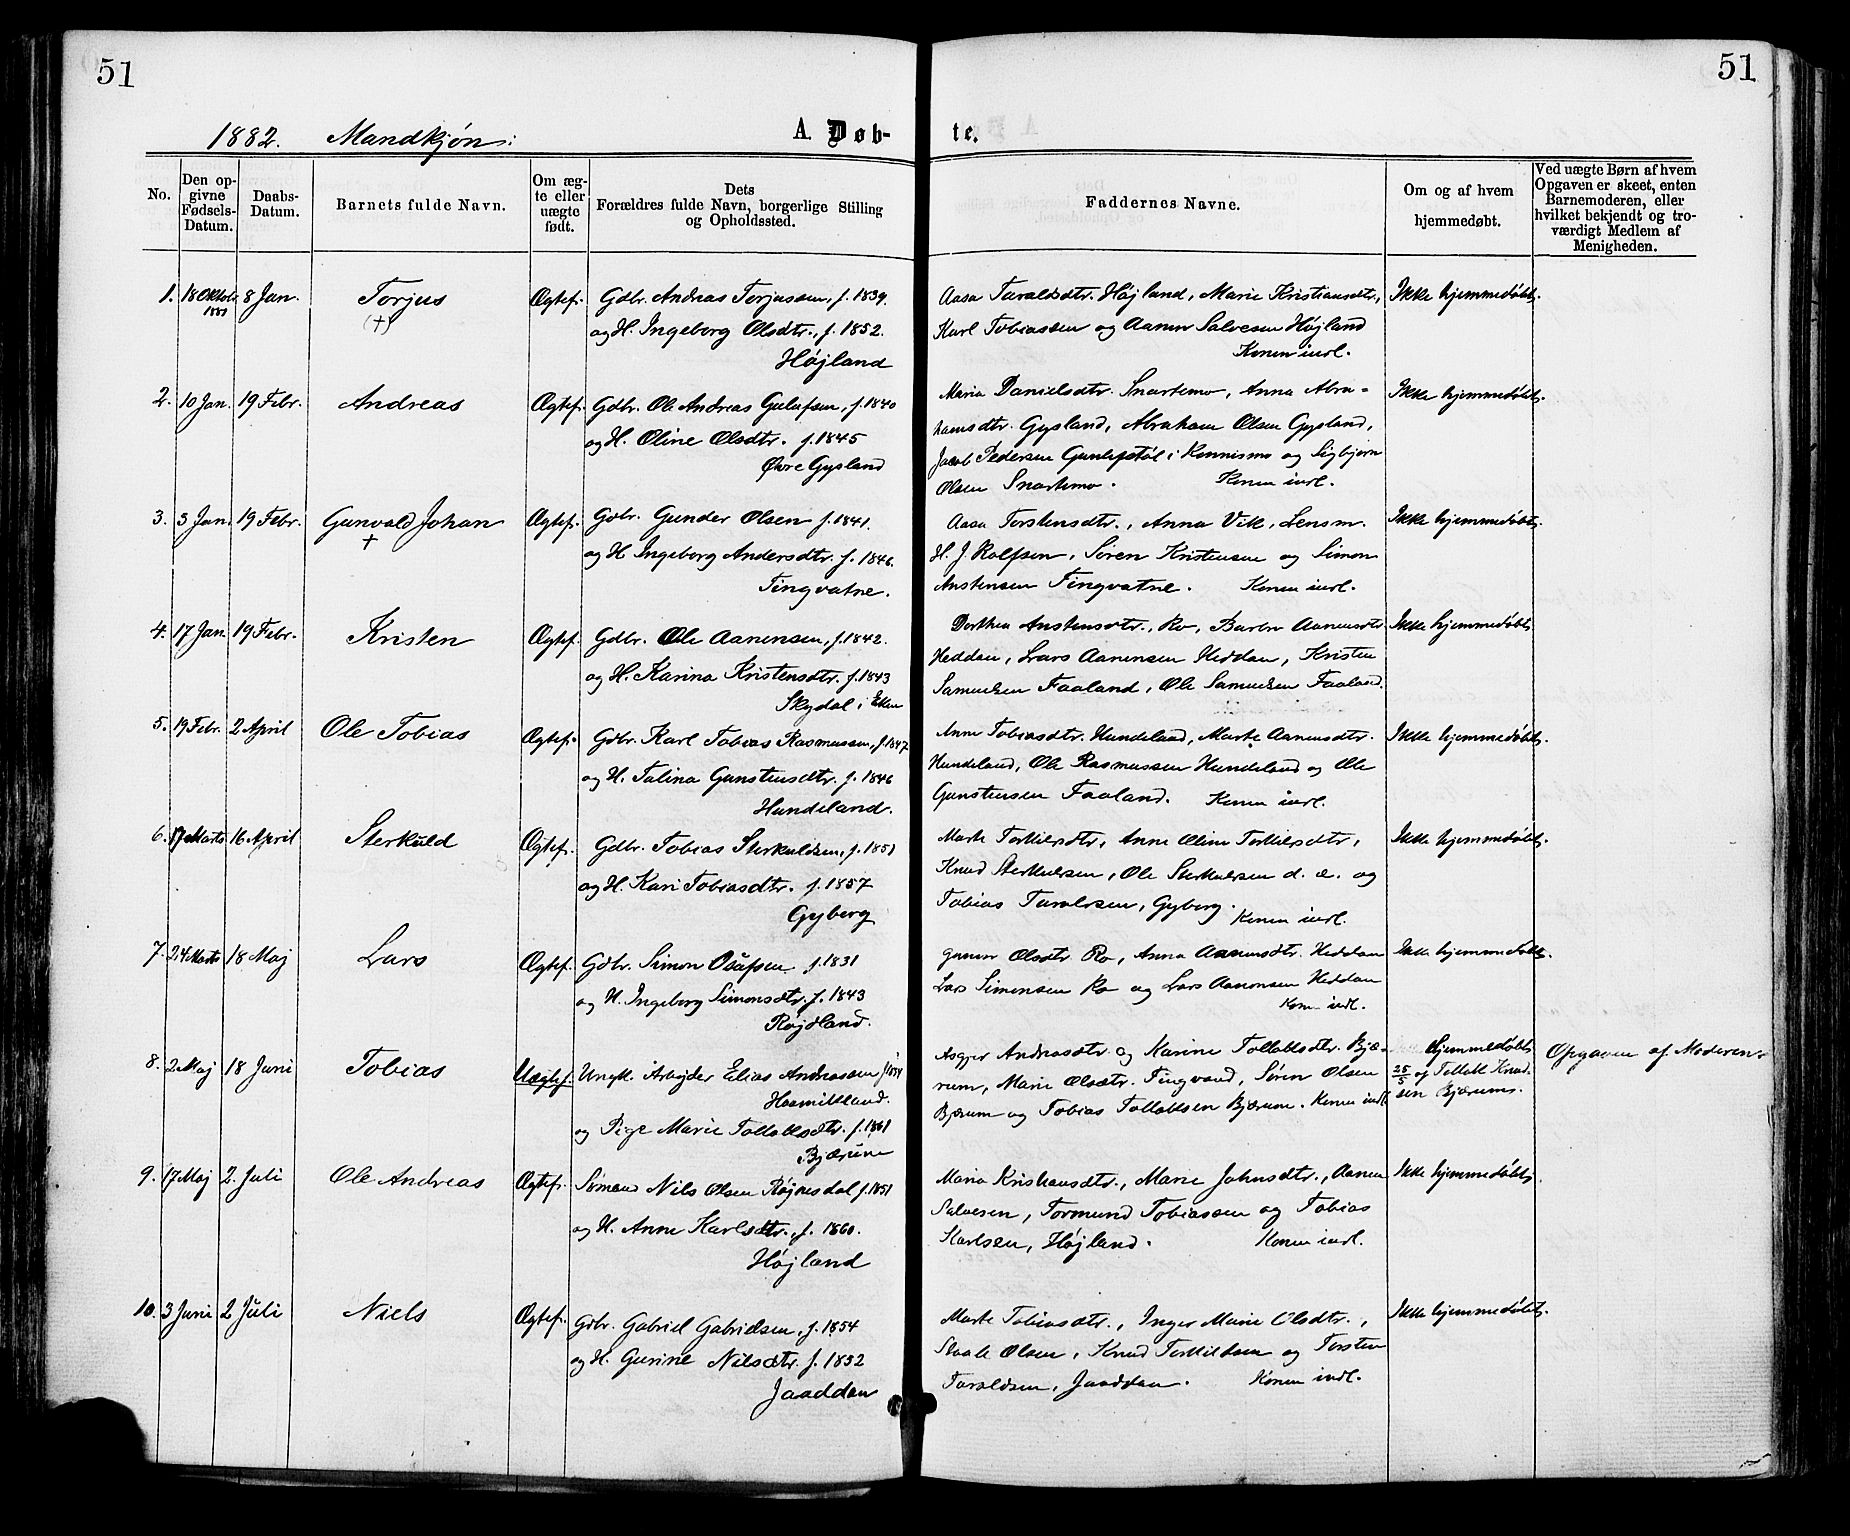 51
51
1882. Mandkjøn:
A. Døb-
te.
No.
Den op-
givne
Fødsels-
Datum.
Daabs-
Datum.
Barnets fulde Navn.
Om æg-
te eller
uægte
født.
Dets
Forældres fulde Navn, borgerlige Stilling
og Opholdssted.
Faddernes Navne.
Om og af hvem
hjemmedøbt.
Ved uægte Børn af hvem
Opgaven er skeet, enten
Barnemoderen, eller
hvilket bekjendt og tro-
værdigt Medlem af
Menigheden.
1. 18 Oktob. 8 Jan. Torjus Ægtef. Gdbr. Andreas Torjussen, f. 1839.
1881 (+)
og H. Ingeborg Olsdtr., f. 1852.
Højland
Aasa Taraldsdtr. Højland, Marie Kristiansdtr., Ikke hjemmedøbt.
Karl Tobiassen og Aanen Salvesen Højland
Konen indl.
2. 10 Jan. 19 Febr. Andreas Ægtef. Gdbr. Ole Andreas Gulufsen, f. 1840
og H. Oline Olsdtr. f. 1845
Øvre Gysland
Maria Danielsdtr. Snartemo, Anna Abra- Ikke hjemmedøbt.
hamsdtr. Gysland, Abraham Olsen Gysland,
Jacob Pedersen i og Sigbjørn
Olsen Snartemo. Konen indl.
3. 3 Jan. 19 Febr. Gunvald Johan Ægtef. Gdbr. Gunder Olsen f. 1841.
+
og H. Ingeborg Andersdtr. f. 1846.
Tingvatne.
Aasa Torstensdtr., Anna Vik, Lensm. Ikke hjemmedøbt.
H. J. Rolfsen, Søren Kristensen og Simon
Anstensen Tingvatne. Konen indl.
4. 17 Jan. 19 Febr. Kristen Ægtef. Gdbr. Ole Aanensen, f. 1842.
og H. Karina Kristensdtr. f. 1843
Skydal i Eken
Dorthea Anstensdtr., Ro, Barbro Aanensdtr. Ikke hjemmedøbt.
Heddan, Lars Aanensen Heddan, Kristen
Samuelsen Faaland, Ole Samuelsen Faaland.
5. 19 Febr. 2 April Ole Tobias Ægtef. Gdbr. Karl Tobias Rasmussen, f. 1847
og H. Talina Gunstensdtr. f. 1846
Hundeland.
Anne Tobiasdtr. Hundeland, Marte Aanensdtr. Ikke hjemmedøbt.
Hundeland, Ole Rasmussen Hundeland og Ole
Gunstensen Faaland. Konen indl.
6. 17 Marts 16 April Sterkuld Ægtef. Gdbr. Tobias Sterkuldsen, f. 1851
og H. Kari Tobiasdtr. f. 1857
Gyberg
Marte Torkildsdtr., Anne Oline Torkildsdtr., Ikke hjemmedøbt.
Knud Sterkuldsen, Ole Sterkuldsen d. æ. og
Tobias Taraldsen, Gyberg. Konen indl.
7. 24 Marts 18 Maj Lars Ægtef. Gdbr. Simon Olufsen f. 1831
og H. Ingeborg Simonsdtr. f. 1843
Røjdland.
Gunvor Olsdtr. Ro, Anna Aanensdtr. Heddan Ikke hjemmedøbt.
Lars Simonsen Ro og Lars Aanonsen Heddan
Kon. indl.
8. 2 Maj 18 Juni Tobias Uægtef. Ungk. Arbejder Elias Andreassen f. 1854
og Pige Marie Tollaksdtr. f. 1861
Bjærum
Asgjer Andreasdtr. og Karine Tollaksdtr. Bjæ- Hjemmedøbt Opgaven af Moderen.
rum, Marie Olsdtr. Tingvand, Søren Olsen 25/5 af Tollak Knud-
Bjærum og Tobias Tollaksen Bjærum. Konen indl. sen Bjærum.
9. 17 Maj 2. Juli Ole Andreas Ægtef. Sømand Nils Olsen Røjnesdal f. 1851
og H. Anne Karlsdtr. f. 1860.
Højland
Maria Kristiansdtr., Marie Johnsdtr., Aanen Ikke hjemmedøbt.
Salvesen, Tormund Tobiassen og Tobias
Karlsen, Højland. Konen indl.
10. 3 Juni 2 Juli Niels Ægtef. Gdbr. Gabriel Gabrielsen, f. 1854
og H. Gurine Nilsdtr. f. 1852
Jaaddan
Marte Tobiasdtr., Inger Marie Olsdtr., Ikke hjemmedøbt.
Staale Olsen, Knud Torkildsen og Torsten
Taraldsen, Jaaddan. Konen indl.